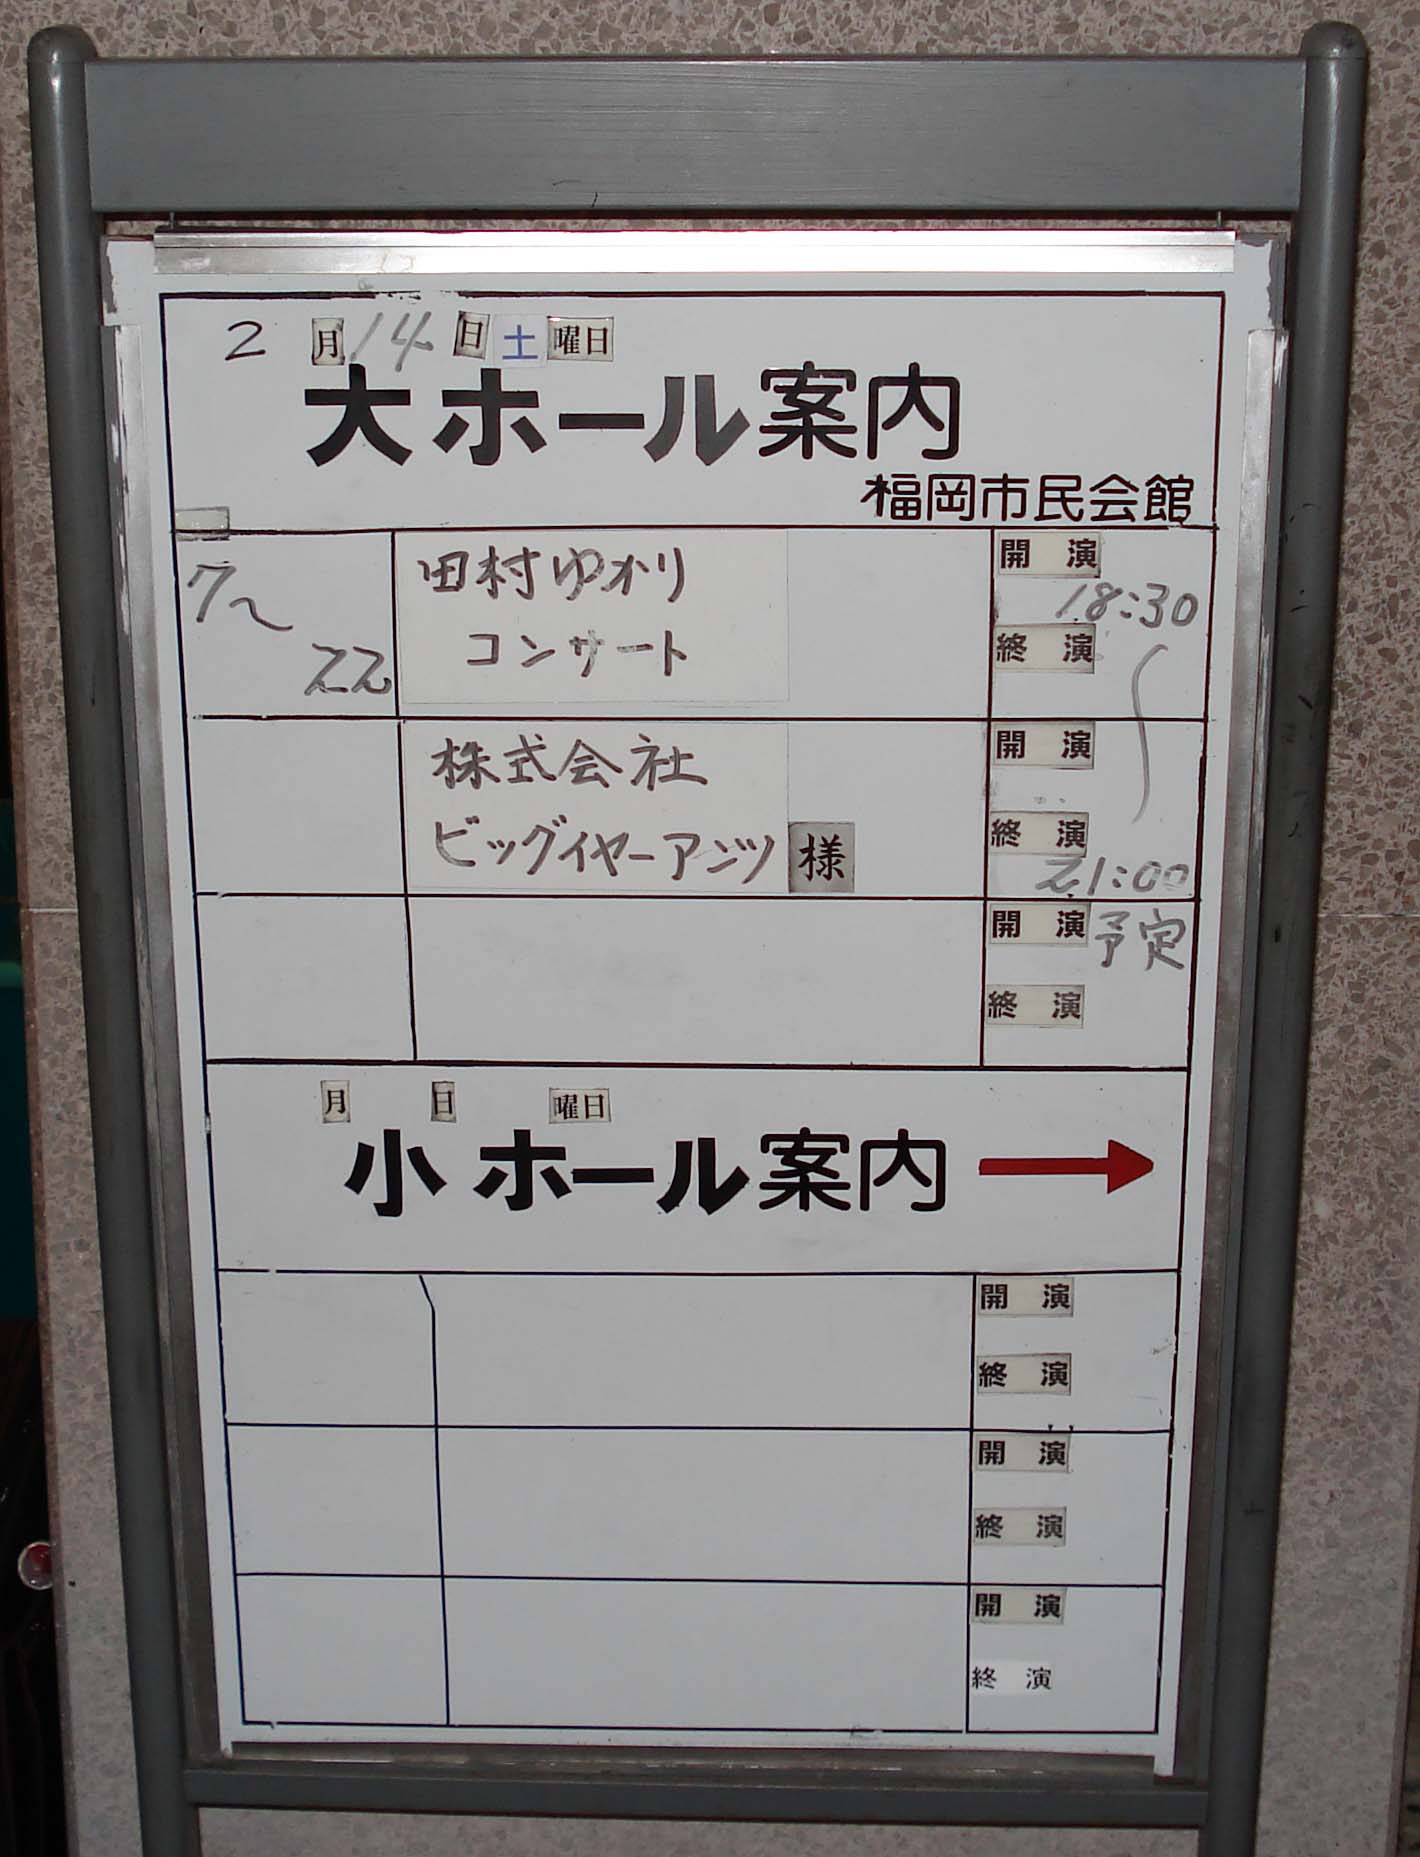 2月14日土曜日
大ホール案内
福岡市民会館
7~
22
田村ゆかり
コンサート
開演
18:30
終演
〜
株式会社
ビッグイヤーアンツ様
開演
終演
21:00
開演
予定
終演
月 日 曜日
小ホール案内→
開演
終演
開演
終演
開演
終演